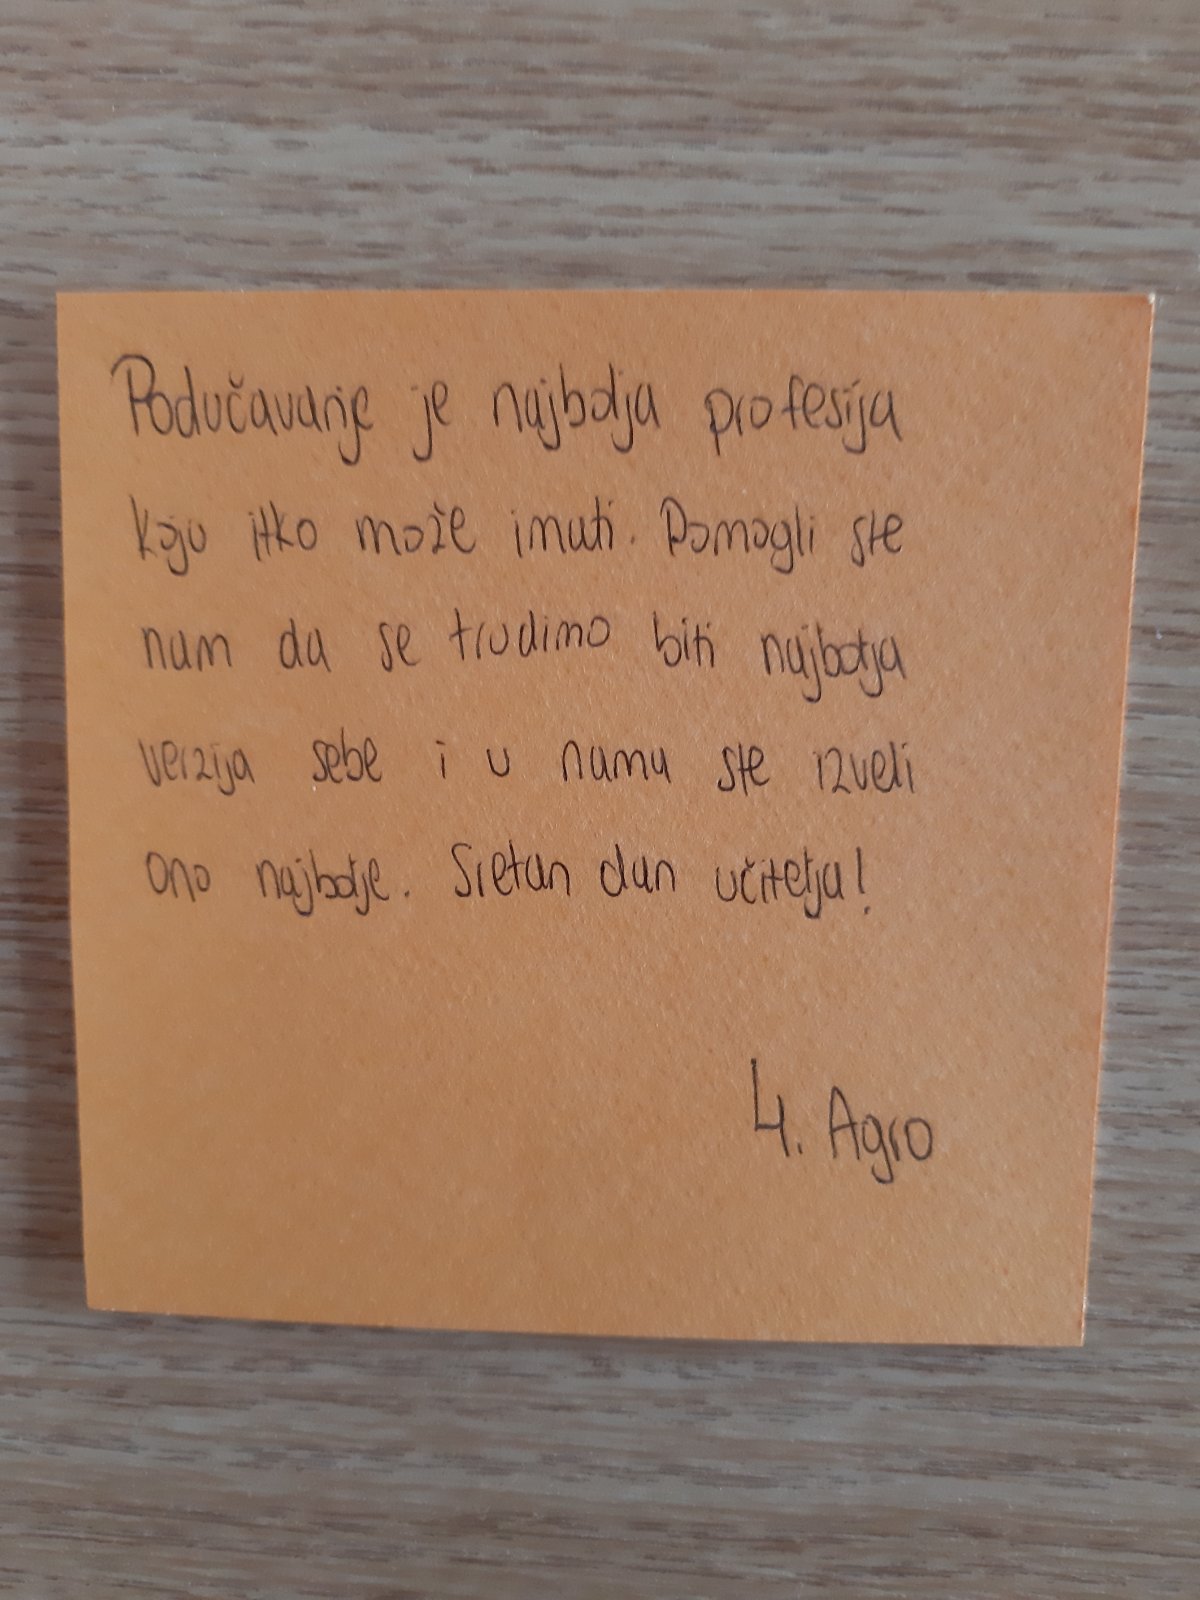 Podučavanje je najbolja profesija
koju itko može imati. Pomogli ste
nam da se trudimo biti najbolja
verzija sebe i u nama ste izveli
ono najbolje. Sretan dan učitelja!
4. Agro